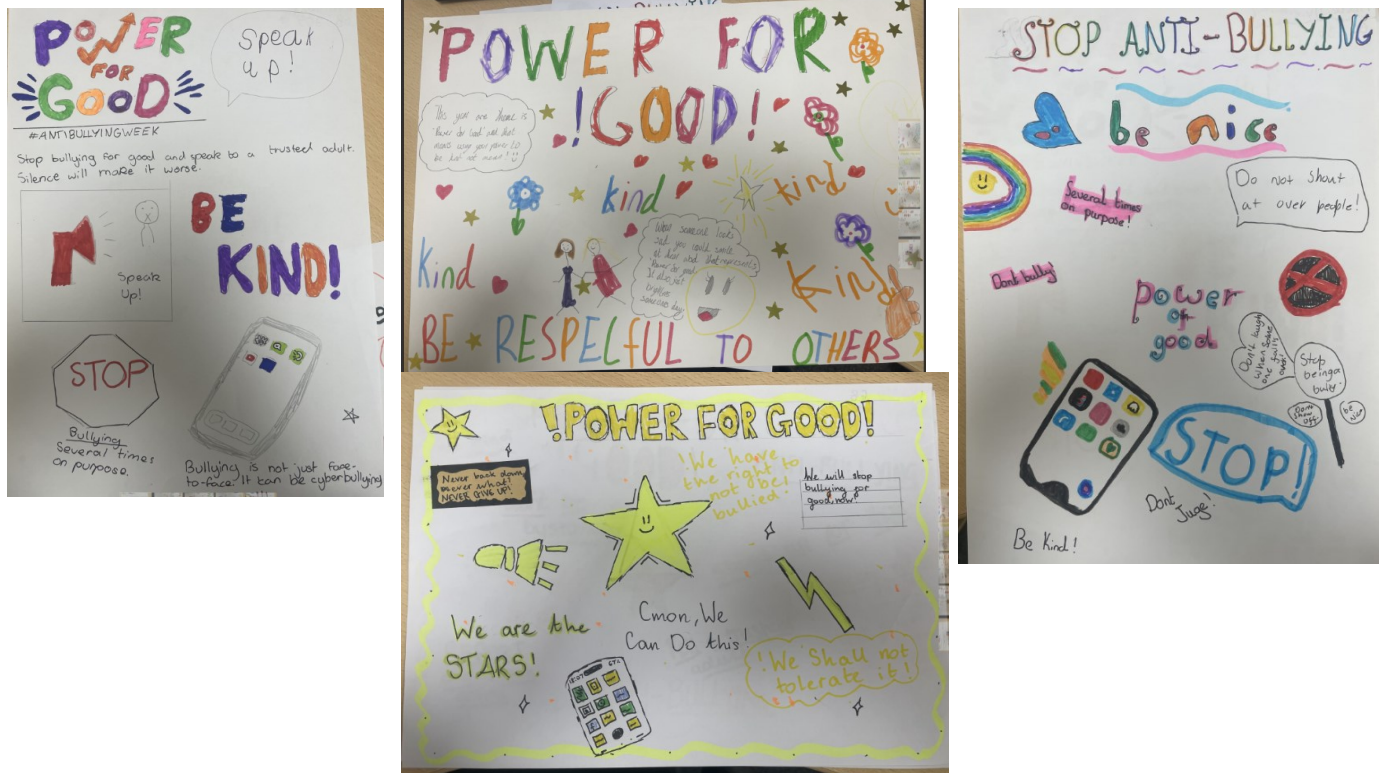 POWER
FOR
GOOD
#ANTIBULLYINGWEEK
Speak
up!
Stop bullying for good and speak to a trusted adult.
Silence will make it worse.
Speak
Up!
BE
KIND!
STOP
Bullying
Several times
on purpose.
Bullying is not just face-
to-face. It can be cyberbullying
POWER FOR
!GOOD!
This year are theme is
'Power for Good' not that
means using your power to
be kind not mean!
kind
kind
Kind
When someone looks
sad you could smile
at them and that represents
'Power for good'
It also just
brightens
someones day
Kind
BE RESPECFUL TO OTHERS
!POWER FOR GOOD!
Never back down
never what?
NEVER GIVE UP!
!We have
the right to
not be
bullied!
We will stop
bullying for
good now!
We are the
STARS!
Cmon, We
Can Do this!
!We Shall not
tolerate it!
STOP ANTI-BULLYING
be nice
Several times
on purpose!
Do not Shout
at over people!
Dont bully!
power
of
good
Don't laugh
when some
one falls
over!
Stop
being a
bully.
Dont
show
off
be nice
STOP!
Dont
Juge!
Be Kind!